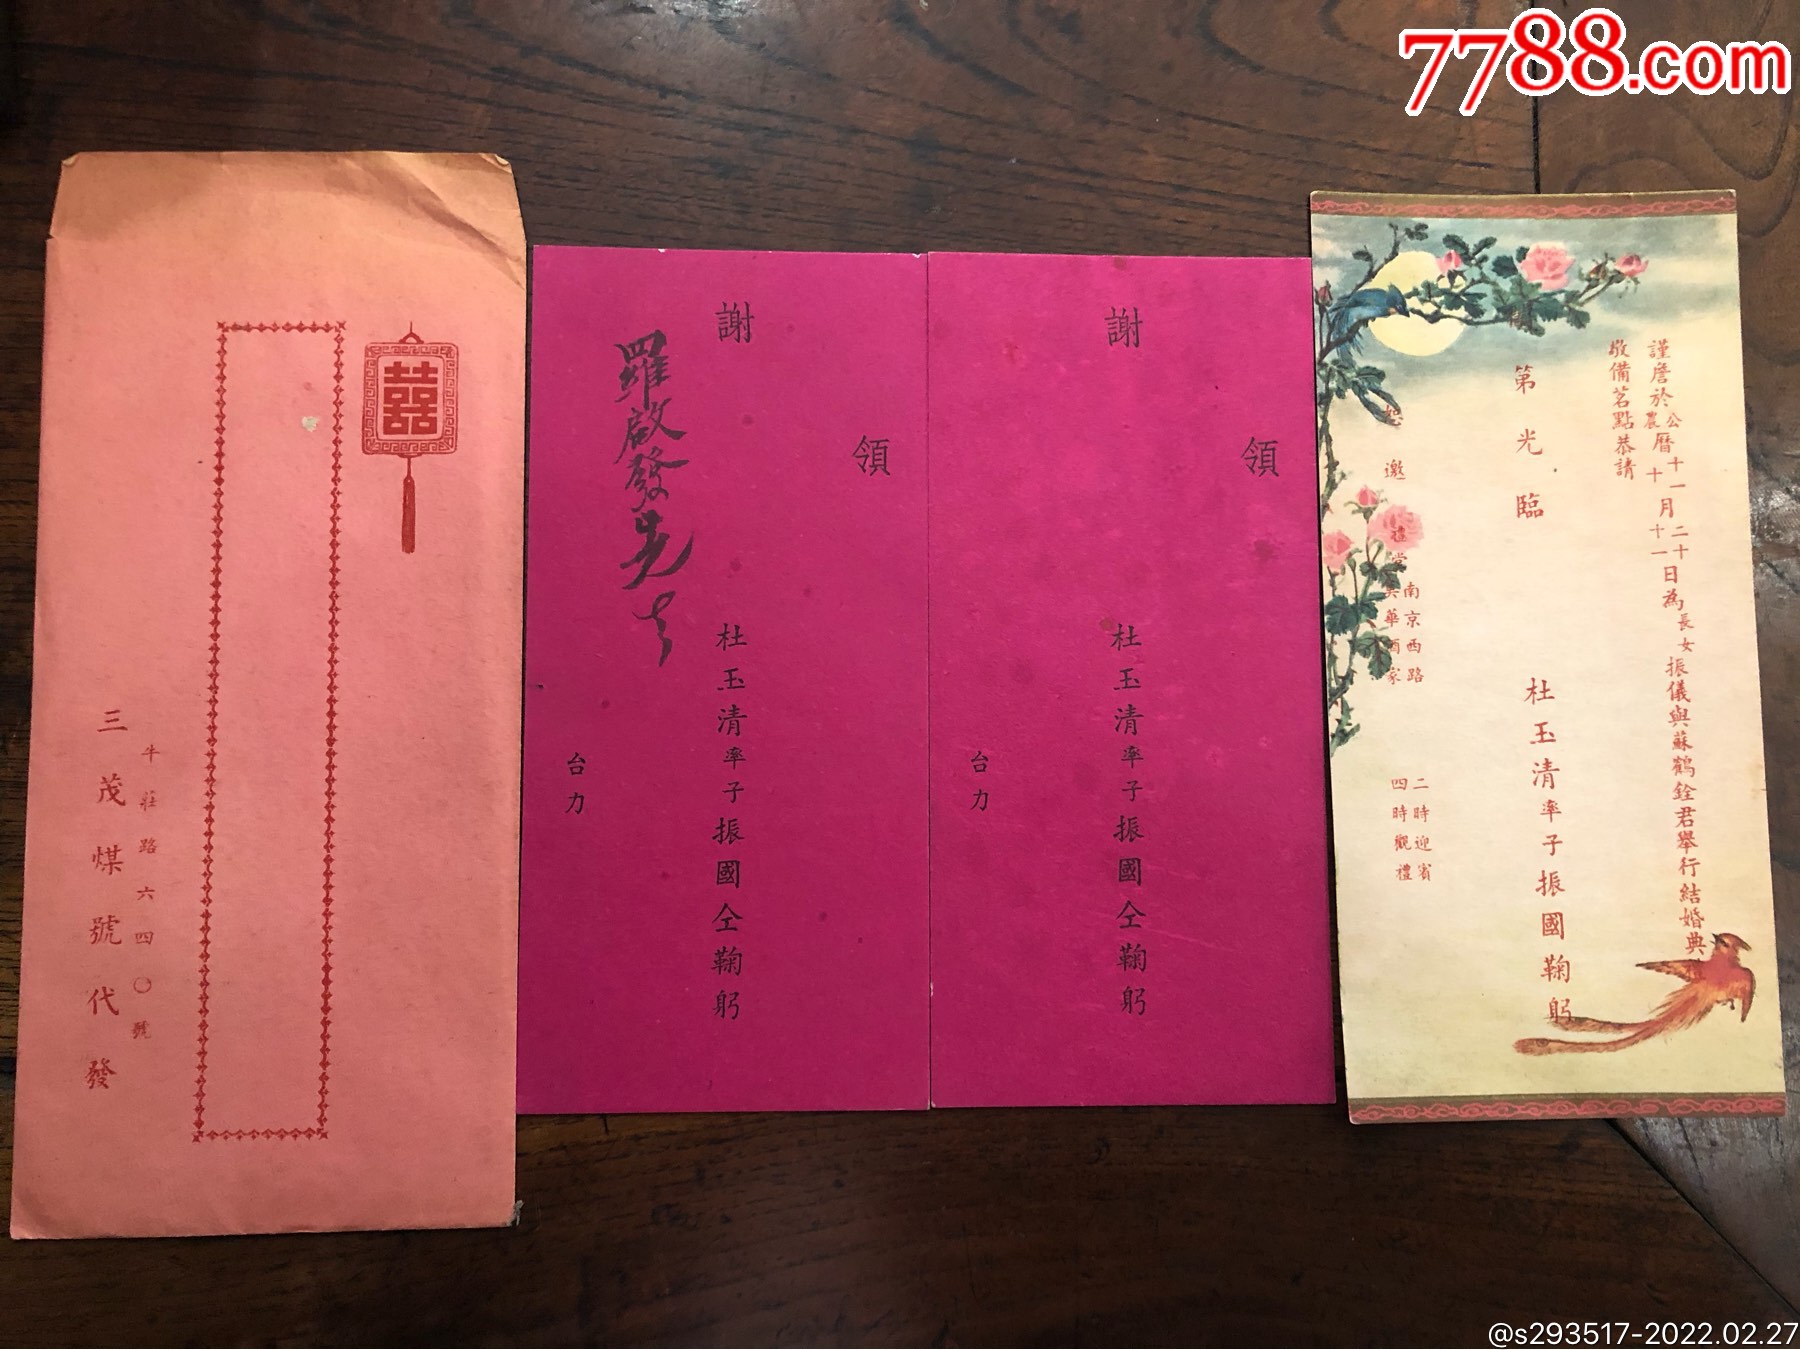 7788.com
囍
牛莊路六四〇號
三茂煤號代發
領
謝
杜玉清率子振國仝鞠躬
羅啟發先生
台力
領
謝
杜玉清率子振國仝鞠躬
台力
謹詹於公農曆十一月二十日為長女振儀與蘇鶴銓君舉行結婚典
十十一
敬備茗點恭請
第光臨
杜玉清率子振國鞠躬
恕邀
禮堂
南京西路
華酒家
二時迎賓
四時觀禮
@s293517-2022.02.27